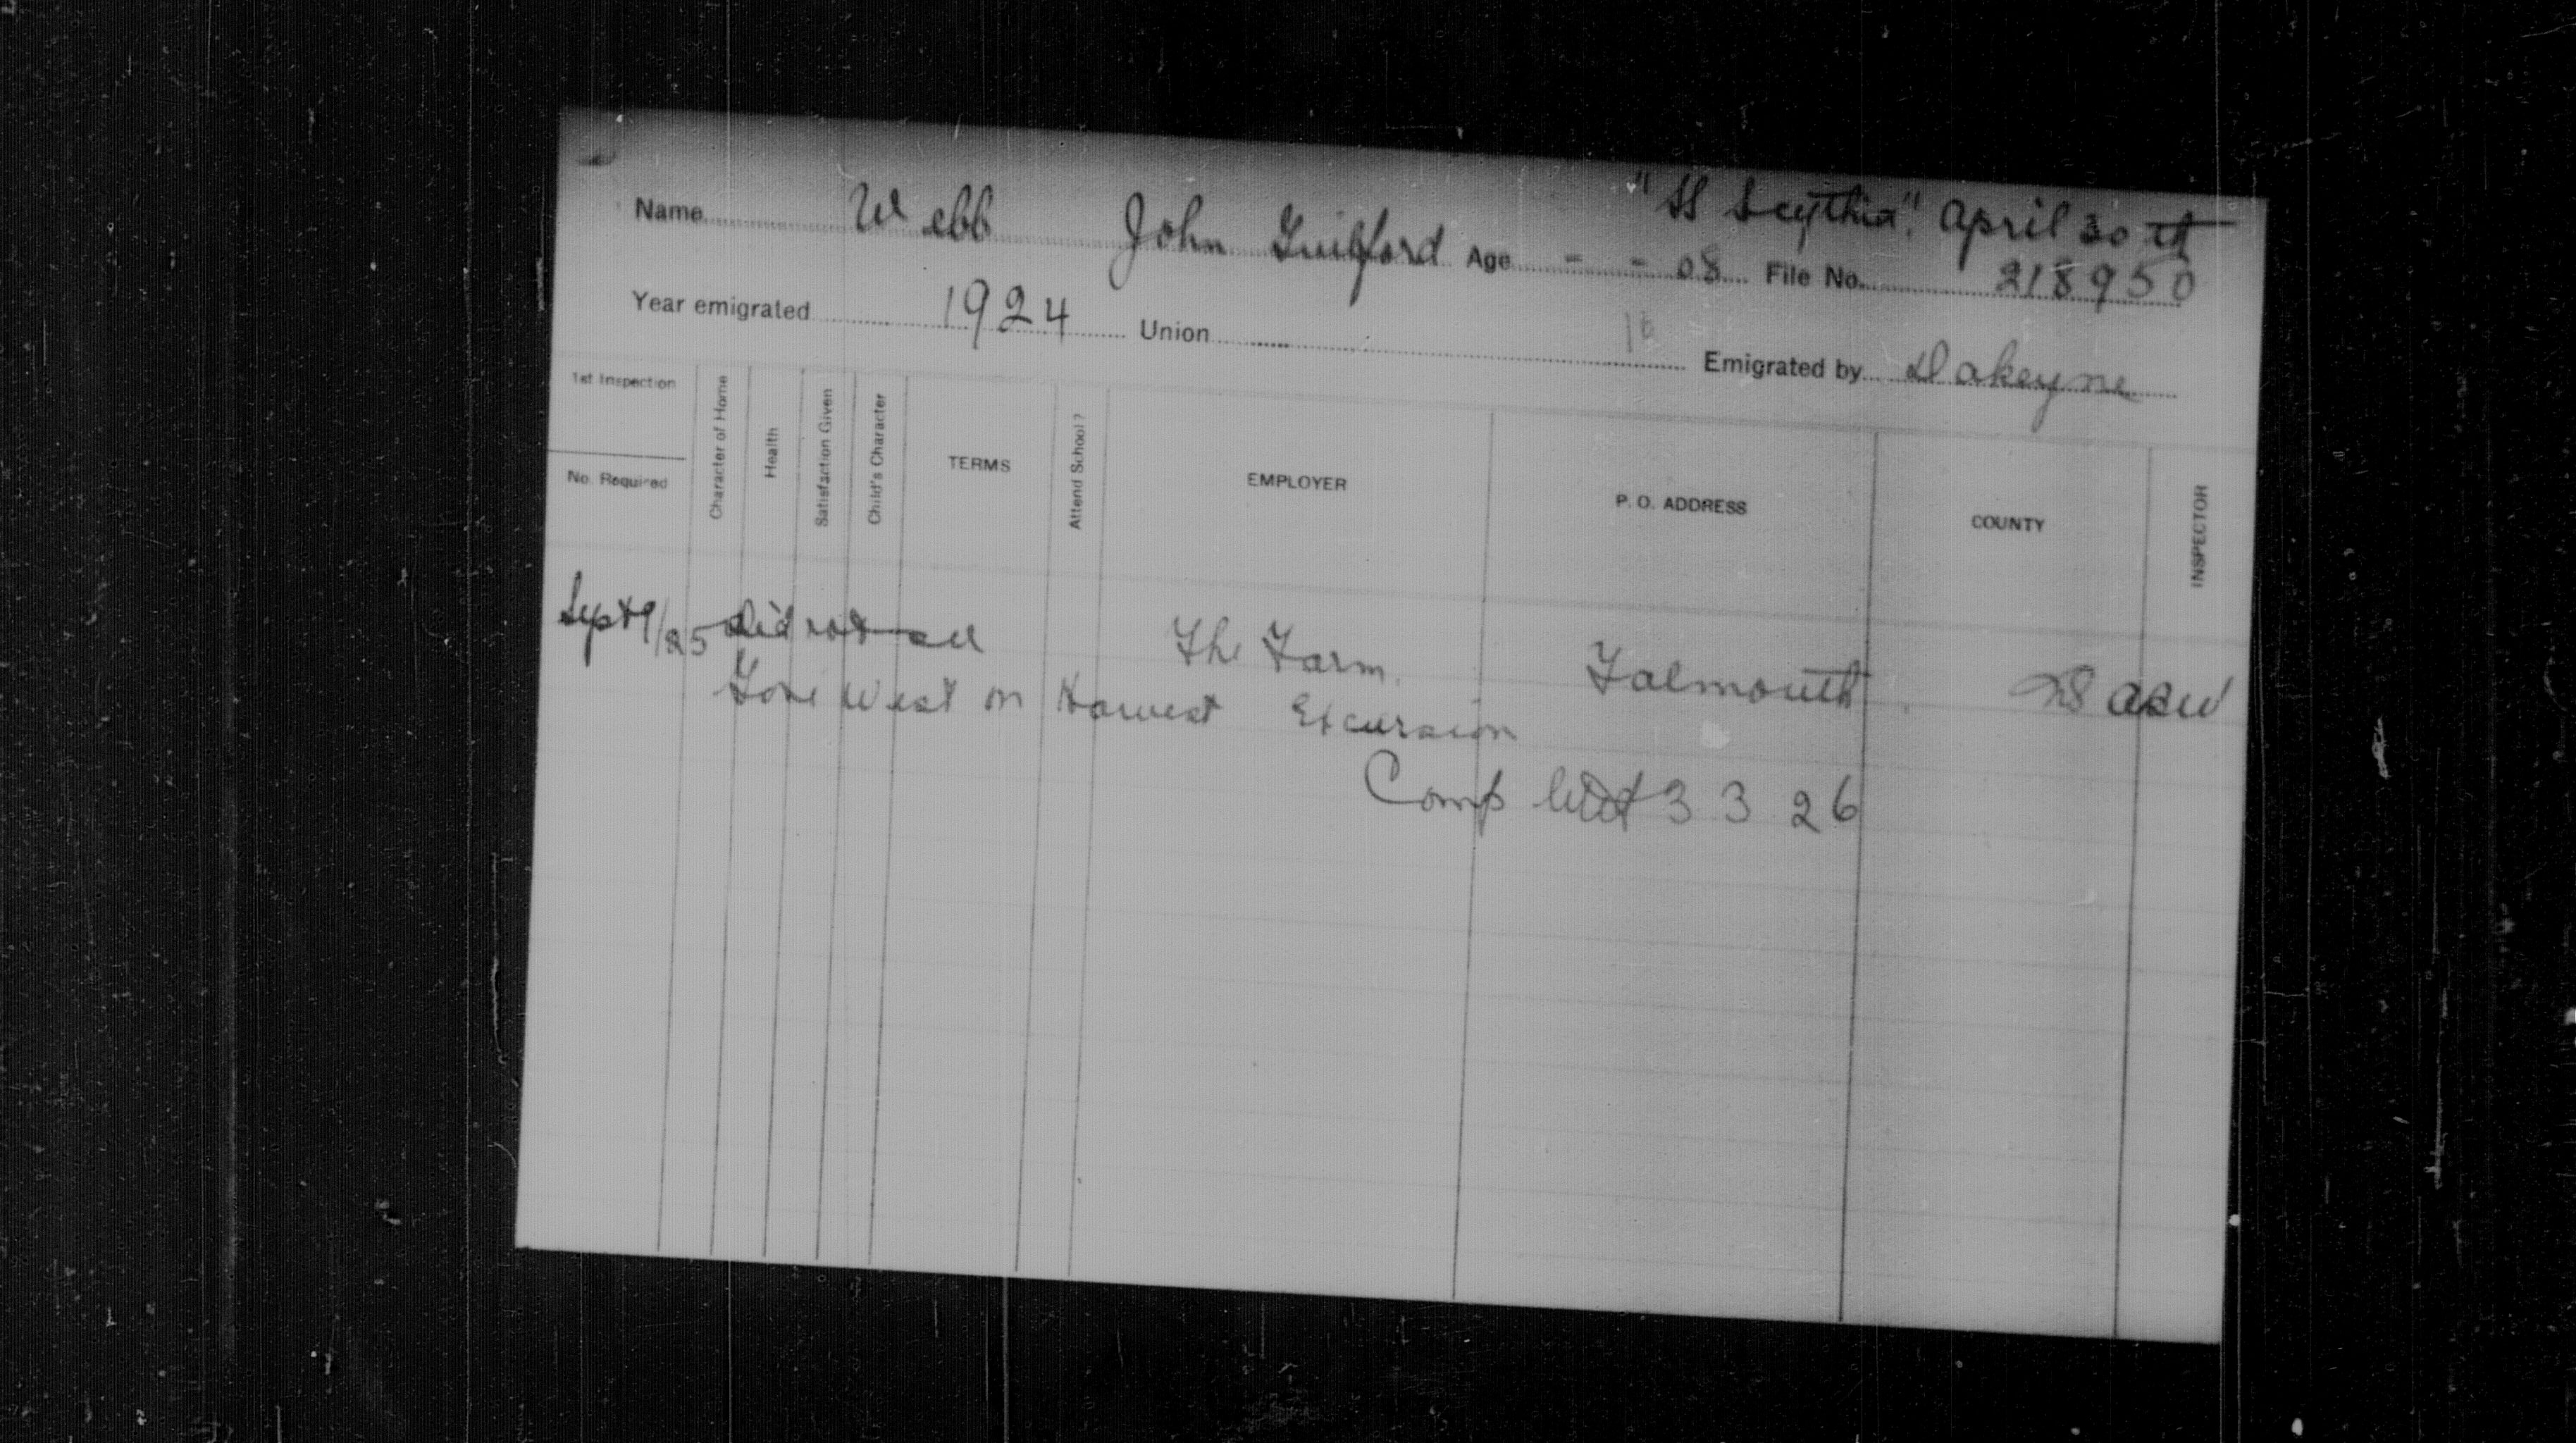 "SS Scythia". April 30th
Name Webb John Guilford Age - - 08 File No. 218950
Year emigrated 1924 Union 16 Emigrated by Dakeyne
1st Inspection
No. Required
Character of Home
Health
Satisfaction Given
Child's Character
TERMS
Attend School?
EMPLOYER
P. O. ADDRESS
COUNTY
INSPECTOR
Sept 9/25 Did not see The Farm. Falmouth
Gone West on Harvest Excursion
Comp 3 3 26